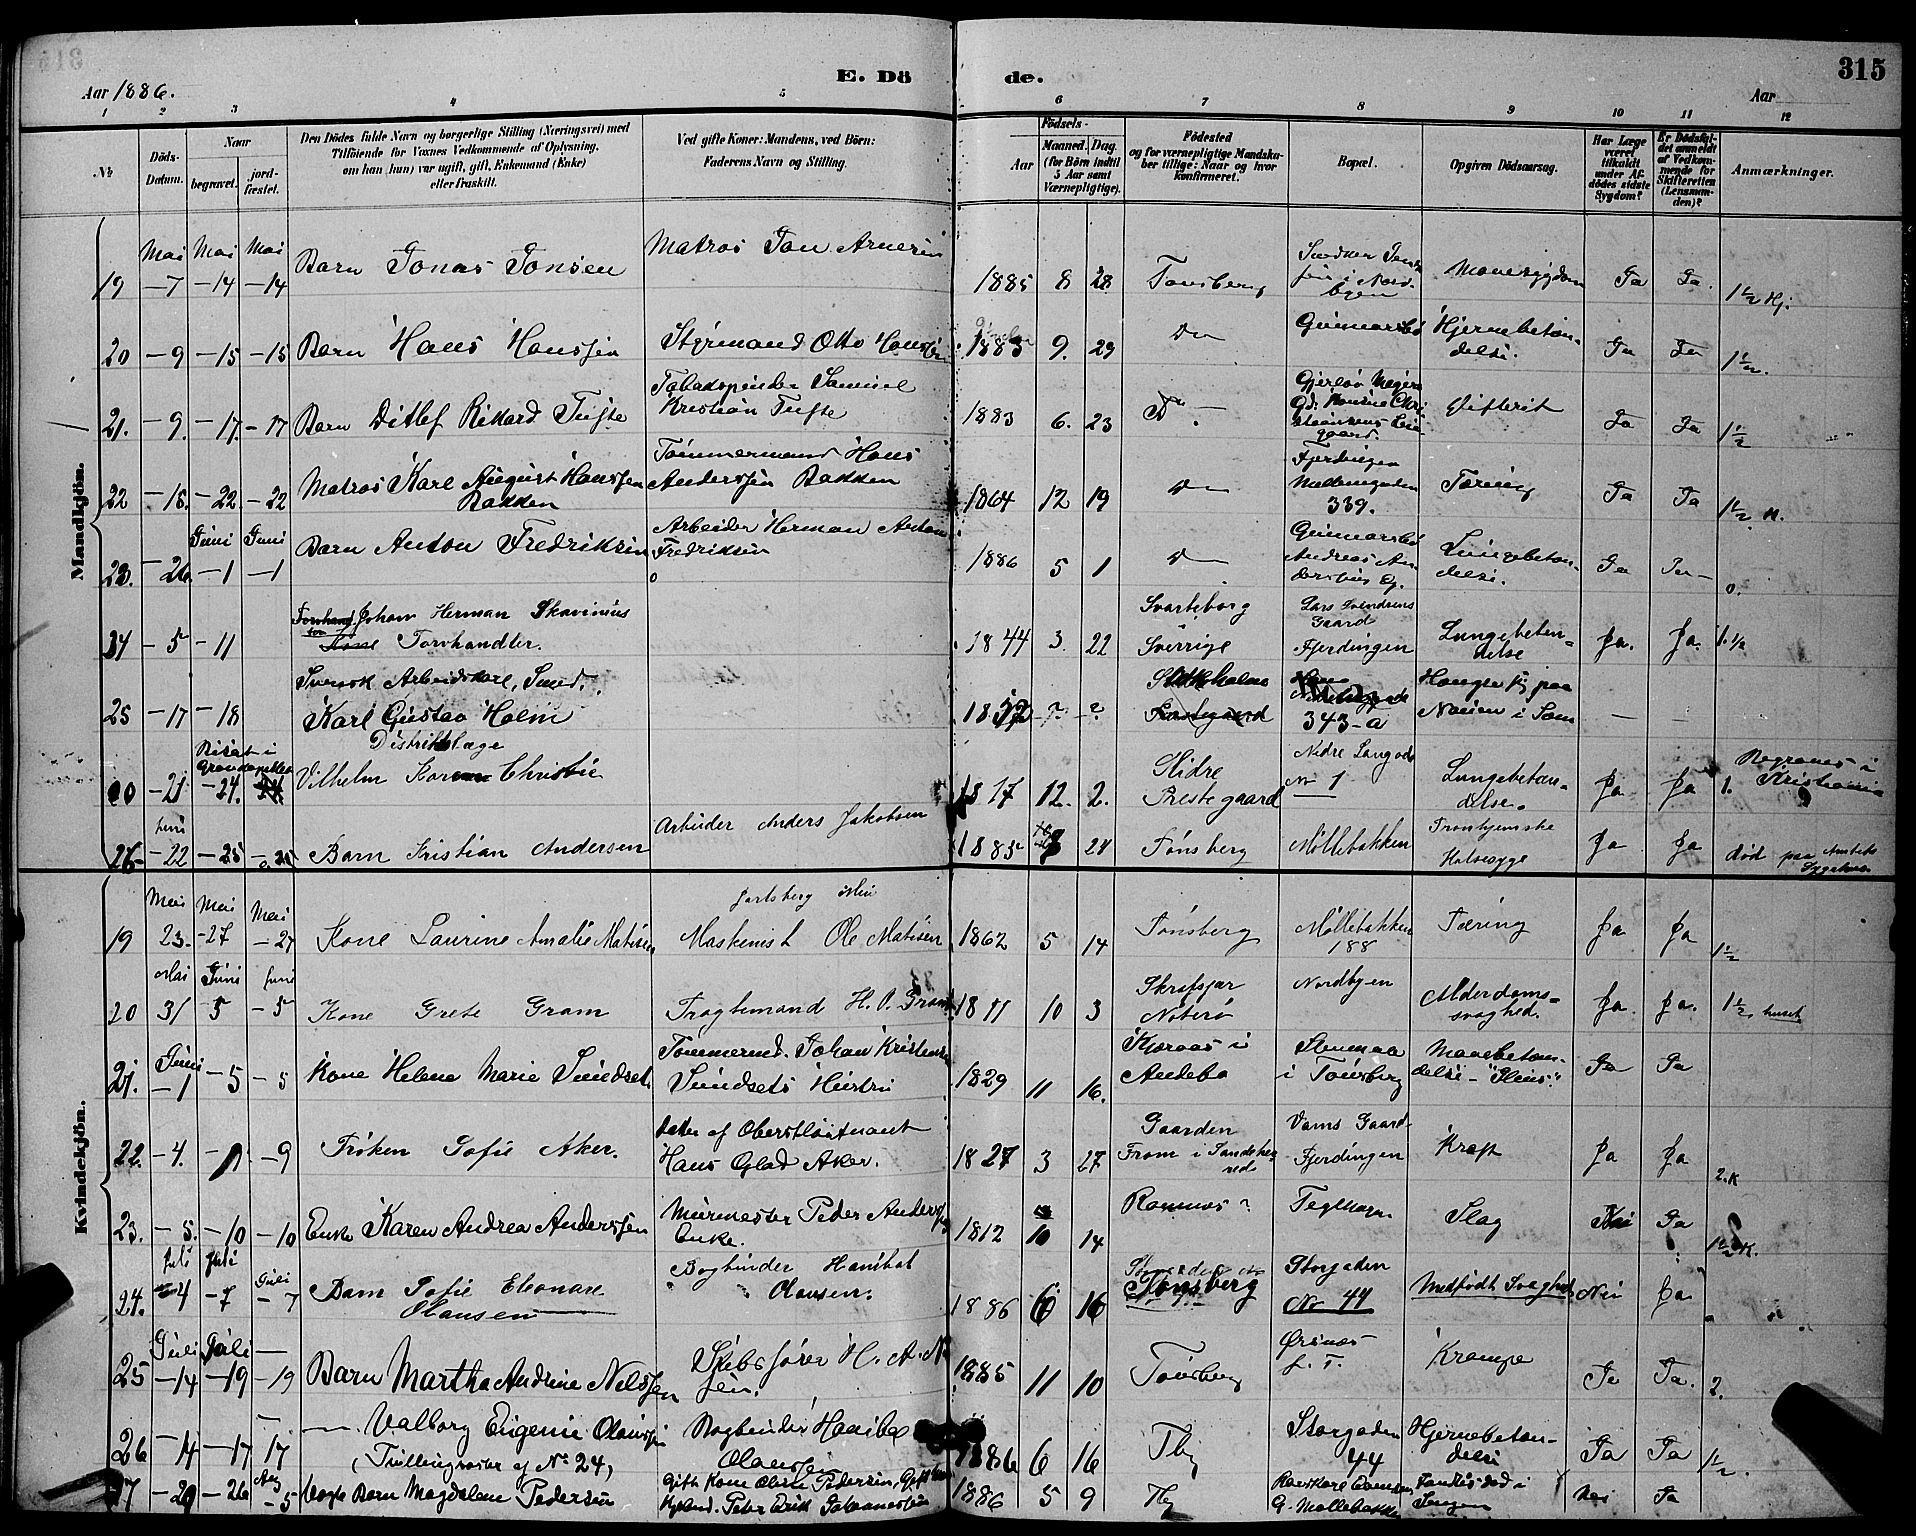 315
E. Dö de.
Aar 1886.
Aar
1 2 3 4 5 6 7 8 9 10 11 12
№
Döds-Datum.
Naar
begravet.
jord-fæstet.
Den Dödes fulde Navn og borgerlige Stilling (Næringsvei) med
Tilföiende for Voxnes Vedkommende af Oplysning,
om han (hun) var ugift, gift, Enkemand (Enke)
eller fraskilt.
Ved gifte Koner: Mandens, ved Börn:
Faderens Navn og Stilling.
Födsels-
Aar
Maaned.
Dag.
(for Börn indtil
5 Aar samt
Værnepligtige).
Födested
og for værnepligtige Mandska-
ber tillige: Naar og hvor
konfirmeret.
Bopæl.
Opgiven Dödsaarsag.
Har Læge
været
tilkaldt
under Af-
dödes sidste
Sygdom?
Er Dödsfal-
det anmeldt
af Vedkom-
mende for
Skifteretten
(Lensman-
den)?
Anmærkninger.
Mandkjön.
Mai Mai Mai
19 – 7 – 14 – 14 Barn Jonas Jonsen Matros Jon 1885 8 28 Tønsberg Mavesygdom Ja Ja 1½ Hj.
20 – 9 – 15 – 15 Barn Hans Hanssen Styrmand Otto Hanssen 1885 9. 29 Do Gunnarsbø Hjernebetæn-
delse. Ja Ja 1½.
21. – 9. – 17. – 17 Barn Ditlef Rikard Tufte Tobakspinder Samuel
Kristian Tufte 1883 6. 23 Do Difterit Ja Ja 1½
22 – 18. – 22 – 22 Matros Karl August Hanssen
Bakken Tømmermand Hans
Anderssen Bakken 1864 12 19 Do Fjerdingen
339. Tæring Ja Ja 1½ K.
Juni Juni
23. – 26. – 1 – 1 Barn Anton Fredriksen Arbeider Herman Anton
Fredriksen 1886 5 1 Do Gunnarsbø
Andreas An-
Lungebetæn-
delse. Ja Ja 0.
24 – 5 – 11 Johan Herman Skavinius
Torvhandler. 1844 3. 22 Svarteborg
Sverrige Lars Svendsens
Gaard
Fjerdingen Lungebetæn-
delse Ja. Ja. 1.½
25 – 17 – 18 Svensk Arbeidskarl, Smed.
Karl Gustav Holm – ? – ? Stokholm 343–a Hængte sig paa
–
Bisat i
Gravkapellet
– 21 – 24. Distriktslæge
Vilhelm Christie 1817 12. 2. Slidre
Prestegaard Nedre Langgade
No 1 Lungebetæn-
delse. Ja Ja 1. Begraves i
Kristiania
Juni
26 – 22 – 25 – 25 Barn Kristian Andersen Arbeider Anders Jakobsen 1885 24 Tønsberg Møllebakken Trondhjemske
Halsesyge Ja Ja død paa Amtets
Sygehus
Kvindekjön.
Mai Mai Mai
19 23. – 27 – 27 Kone Laurine Amalie Matisen Jarlsberg
Maskinist Ole Matisen 1862 5 14 Tønsberg Møllebakken
188 Tæring Ja Ja 1½
Mai Juni Juni
20 31 5 – 5 Kone Grete Gram Fragtemand H. O. Gram 1811 10 3 Nøterø Nordbyen Alderdoms-
svaghed. Ja. Ja. 1½
Juni
21. – 1 – 5 – 5 Kone Helene Marie Sundset Tømmermd. Johan Kristensen
Sundsets Hustru 1829 11 16. Kjæraas i
Andebø
i Tønsberg Mavebetæn-
delse – Ja Ja
22. – 4. – 9 Frøken Sofie Aker. Datter af Oberstløitnant
Hans Glad Aker. 1827 3 27 Gaarden
Fram i Sandehe-
red Vams Gaard
Fjerdingen Kræft Ja Ja 2.K
23. – 5. – 10 – 10 Enke Karen Andrea Anderssen Murmester Peder Anderssen
Enke. 1812 10 14 Ramnæs ? Teglhagen Slag Nei Ja 1½ K.
Juli Juli Juli
24. 4 – 7 – 7 Barn Sofie Eleonore
Olausen Bogbinder Hanibal
Olausen. 1886 6 16 Tønsberg Storgaden
No 44 Medfødt Svaghed Nei Ja
Juli Juli –
25 – 14 – 19 – 19 Barn Martha Andrine Nilssen Skibsfører H. A. Nil
sen. 1885 11 10 Tønsberg Ørsnæs
f. T. Krampe Ja Ja. 2.
26 – 14 – 17 17 – Valborg Eugenie Olaussen
(Tvillingsøster af No 24) Bogbinder Hanibal
Olaussen 1886 6 16 Tbg Storgaden
44 Hjernebetæn-
delse Ja Ja 1½.
Aug
27 – 29 – 26 – 5 Barn Magdalene Pedersen 1886 5 9 Tbg Møllebakken Fandtes død i
Sengen Nei Ja